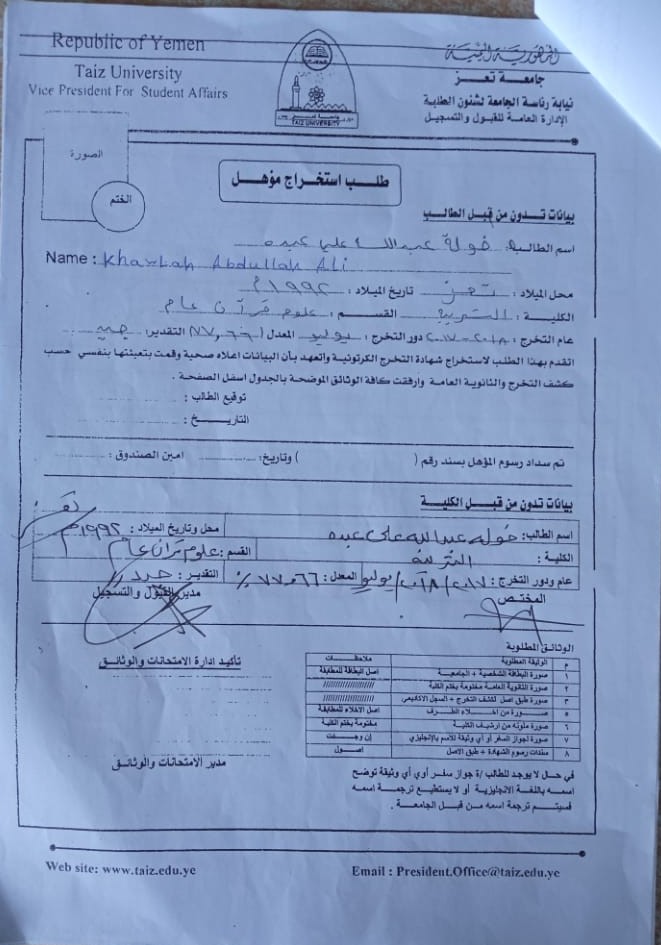 Republic of Yemen
Taiz University
Vice President For Student Affairs
TAIZ UNIVERSITY
الجمهورية اليمنية
جامعة تعز
نيابة رئاسة الجامعة لشئون الطلبة
الإدارة العامة للقبول والتسجيل
الصورة
الختم
طلب استخراج مؤهل
بيانات تدون من قبل الطالب
اسم الطالب: خولة عبدالله علي عبده
Name : Khawlah Abdullah Ali
محل الميلاد : تعز تاريخ الميلاد : ١٩٩٢م
الكلية : التربية القسم : علوم قرآن عام
عام التخرج : ٢٠١٧-٢٠١٨ دور التخرج : يوليو المعدل (٧٧,٦٦) التقدير: جيد
اتقدم بهذا الطلب لاستخراج شهادة التخرج الكرتونية واتعهد بأن البيانات اعلاه صحيحة وقمت بتعبئتها بنفسي حسب
كشف التخرج والثانوية العامة وارفقت كافة الوثائق الموضحة بالجدول اسفل الصفحة .
توقيع الطالب :
التاريخ :
تم سداد رسوم المؤهل بسند رقم ( ) وتاريخ: امين الصندوق :
بيانات تدون من قبل الكلية
اسم الطالب: خوله عبدالله علي عبده محل وتاريخ الميلاد : تعز ١٩٩٢م
الكلية : التربية القسم : علوم قرآن عام
عام ودور التخرج : ٢٠١٧/٢٠١٨ يوليو المعدل : ٧٧,٦٦٪ التقدير : جيد
المختص مدير القبول والتسجيل
الوثائق المطلوبة
م الوثيقة المطلوبة ملاحظات
١ صورة البطاقة الشخصية + الجامعية اصل البطاقة للمطابقة
٢ صورة الثانوية العامة مختومة بختم الكلية ////////////////////
٣ صورة طبق اصل لكشف التخرج + السجل الاكاديمي ////////////////////
٥ صورة من اخلاء الطرف اصل الاخلاء للمطابقة
٦ صورة ملونه من ارشيف الكلية مختومة بختم الكلية
٧ صورة لجواز السفر أو أي وثيقة للاسم بالإنجليزي إن وجدت
٨ سندات رسوم الشهادة + طبق الاصل اصول
تأكيد ادارة الامتحانات والوثائق
مدير الامتحانات والوثائق
في حال لا يوجد للطالب /ة جواز سفر أوي أي وثيقة توضح
اسمه باللغة الانجليزية أو لا يستطيع ترجمة اسمه
فسيتم ترجمة اسمه من قبل الجامعة .
Web site: www.taiz.edu.ye
Email : President.Office@taiz.edu.ye